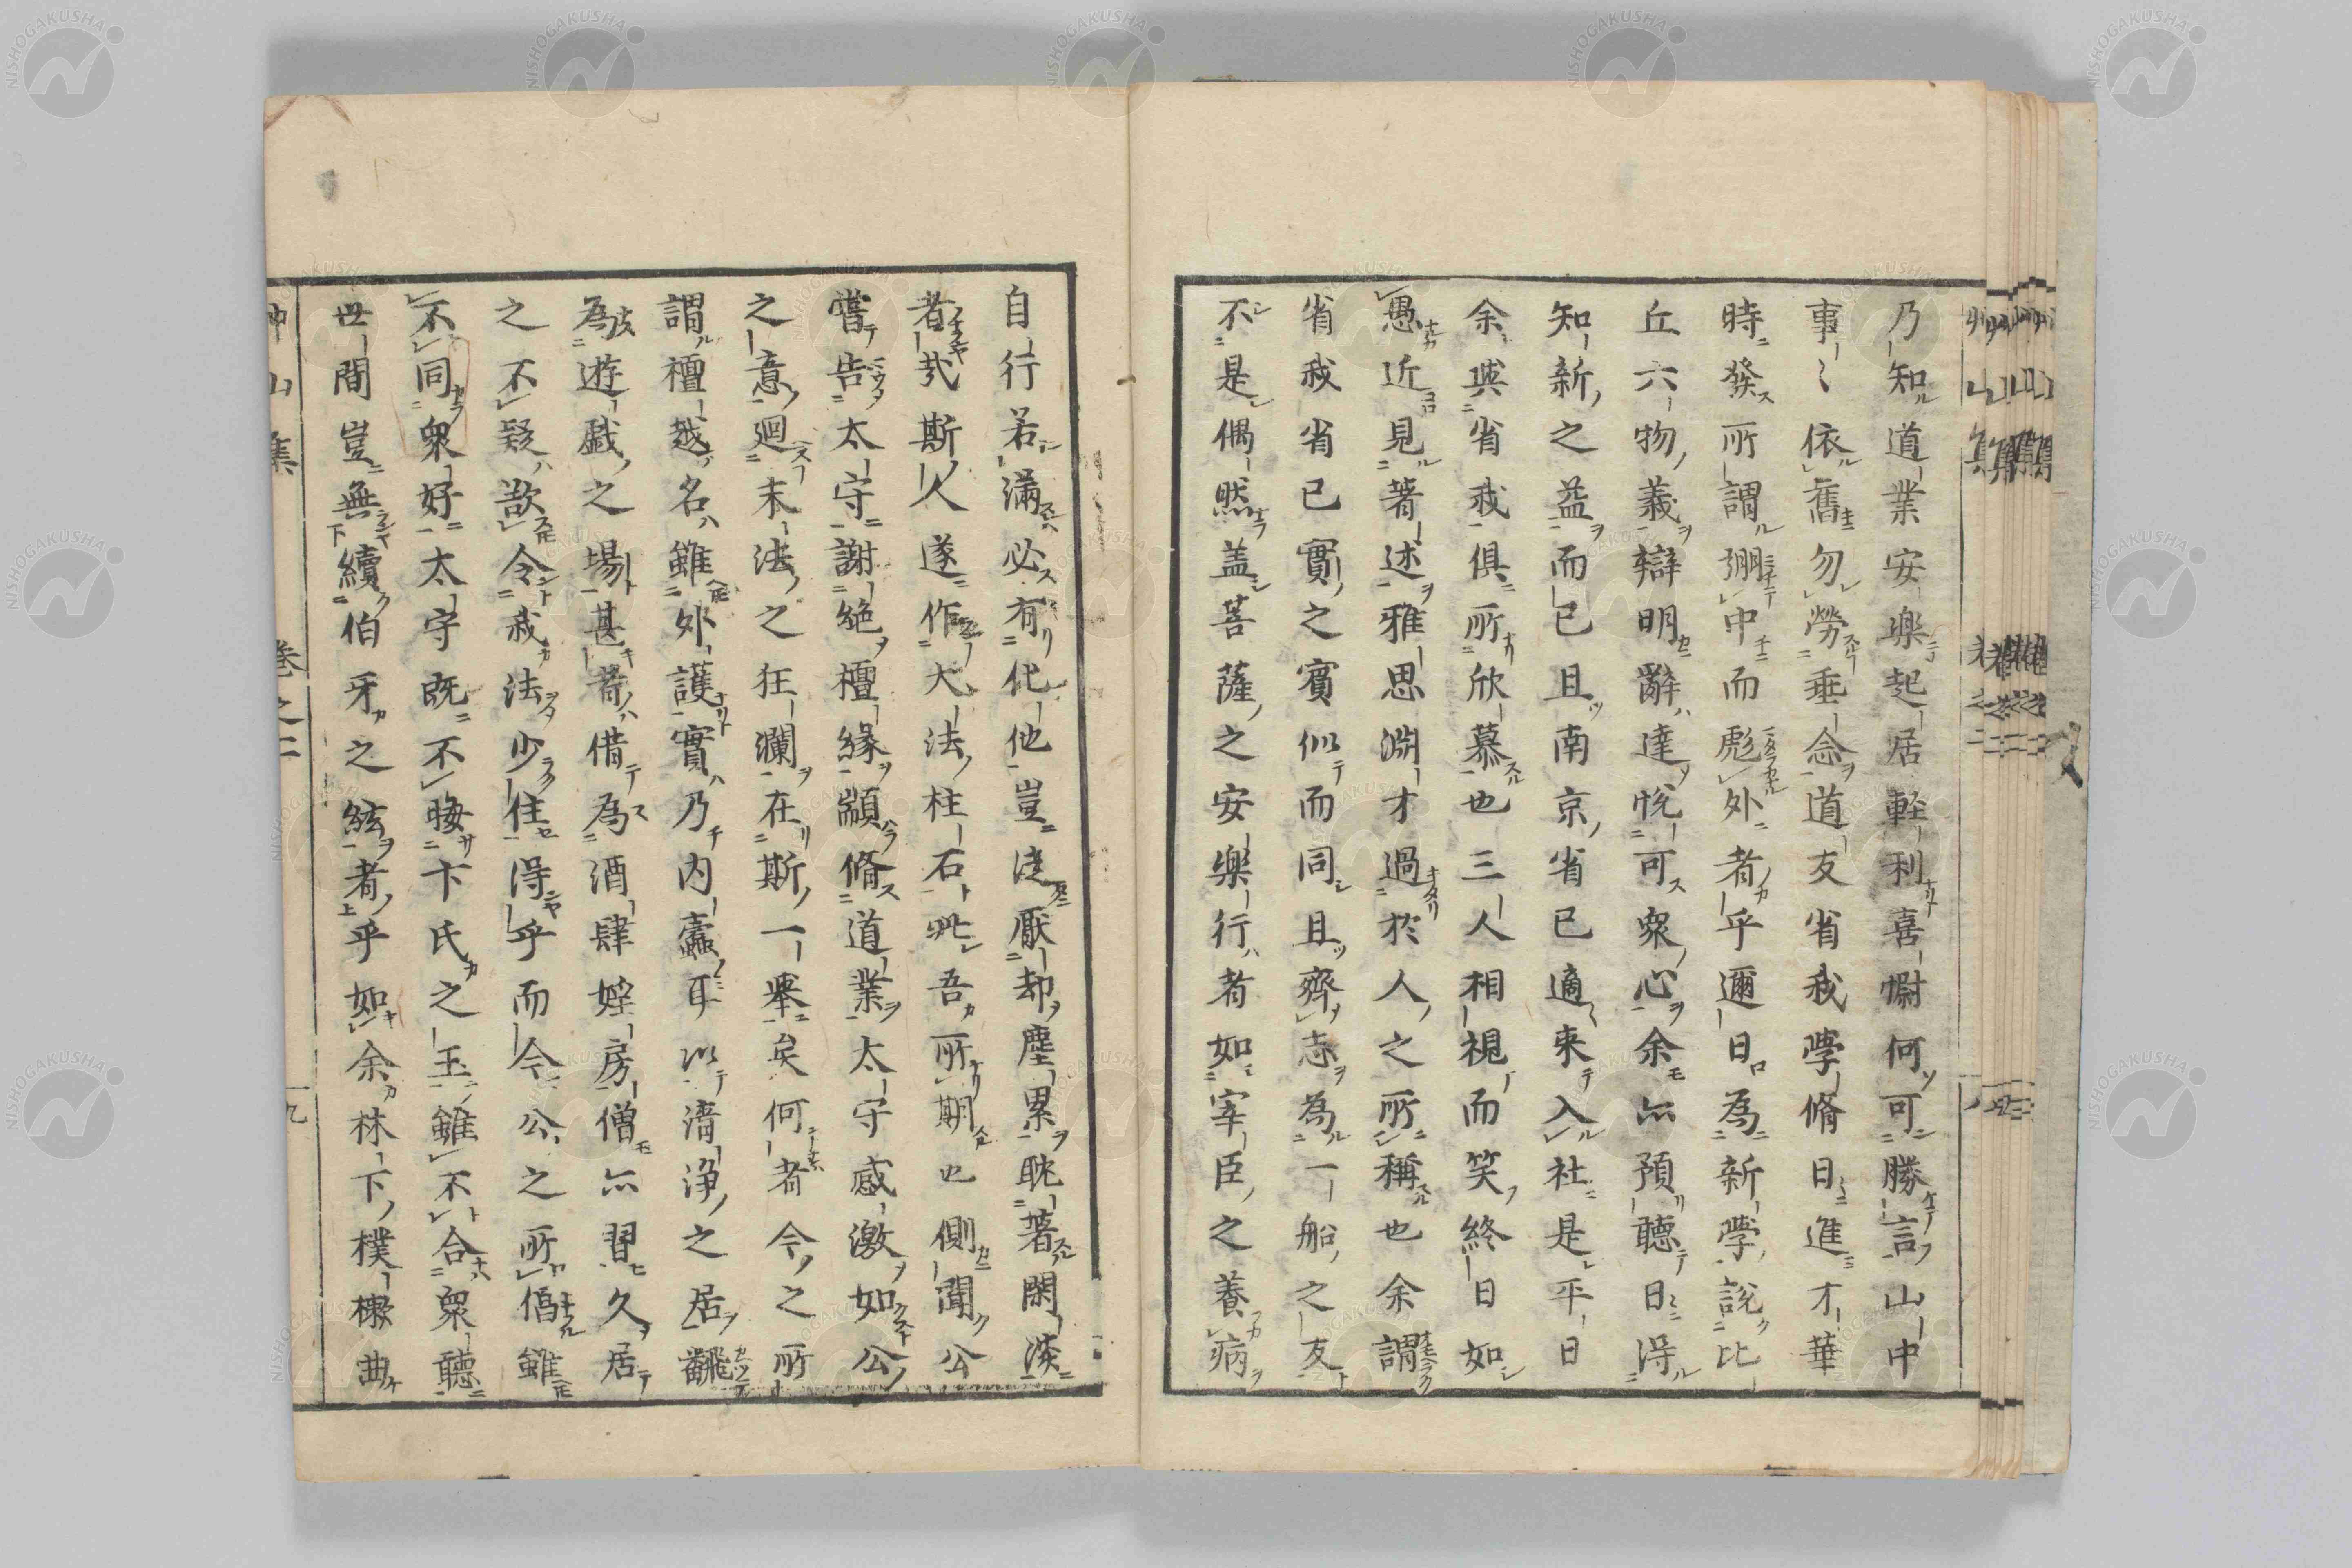 乃知道業安樂起居軽利喜慰何可勝言山中
事〻依舊勿勞垂念道友省我學脩日進才華
時發所謂弸中而彪外者乎邇日為新學說比
丘六物義辯明辭達悅可衆心余亦預聽日得
知新之益而已且南京省已適來入社是平日
余與省我俱所欣慕也三人相視而笑終日如
愚近見著述雅思淵才過於人之所稱也余謂
省我省已實之賓似而同且齊志為一船之友
不是偶然盖菩薩之安樂行者如宰臣之養病
自行若滿必有化他豈徒厭却塵累耽著閑淡
者哉斯人遂作大法柱石此吾所期也側聞公
嘗告太守謝絶檀縁顓脩道業太守感激如公
之意迴末法之狂瀾在斯一舉矣何者今之所
謂檀越名雖外護實乃内蠧耳以清淨之居翻
為遊戯之場甚者借為酒肆婬房僧亦習久居
之不疑欲令我法少住得乎而今公之所偶雖
不同衆好太守既不晦卞氏之玉雖不合衆聽
世間豈無續伯牙之絃者乎如余林下樸樕曲
山集 卷之二 九